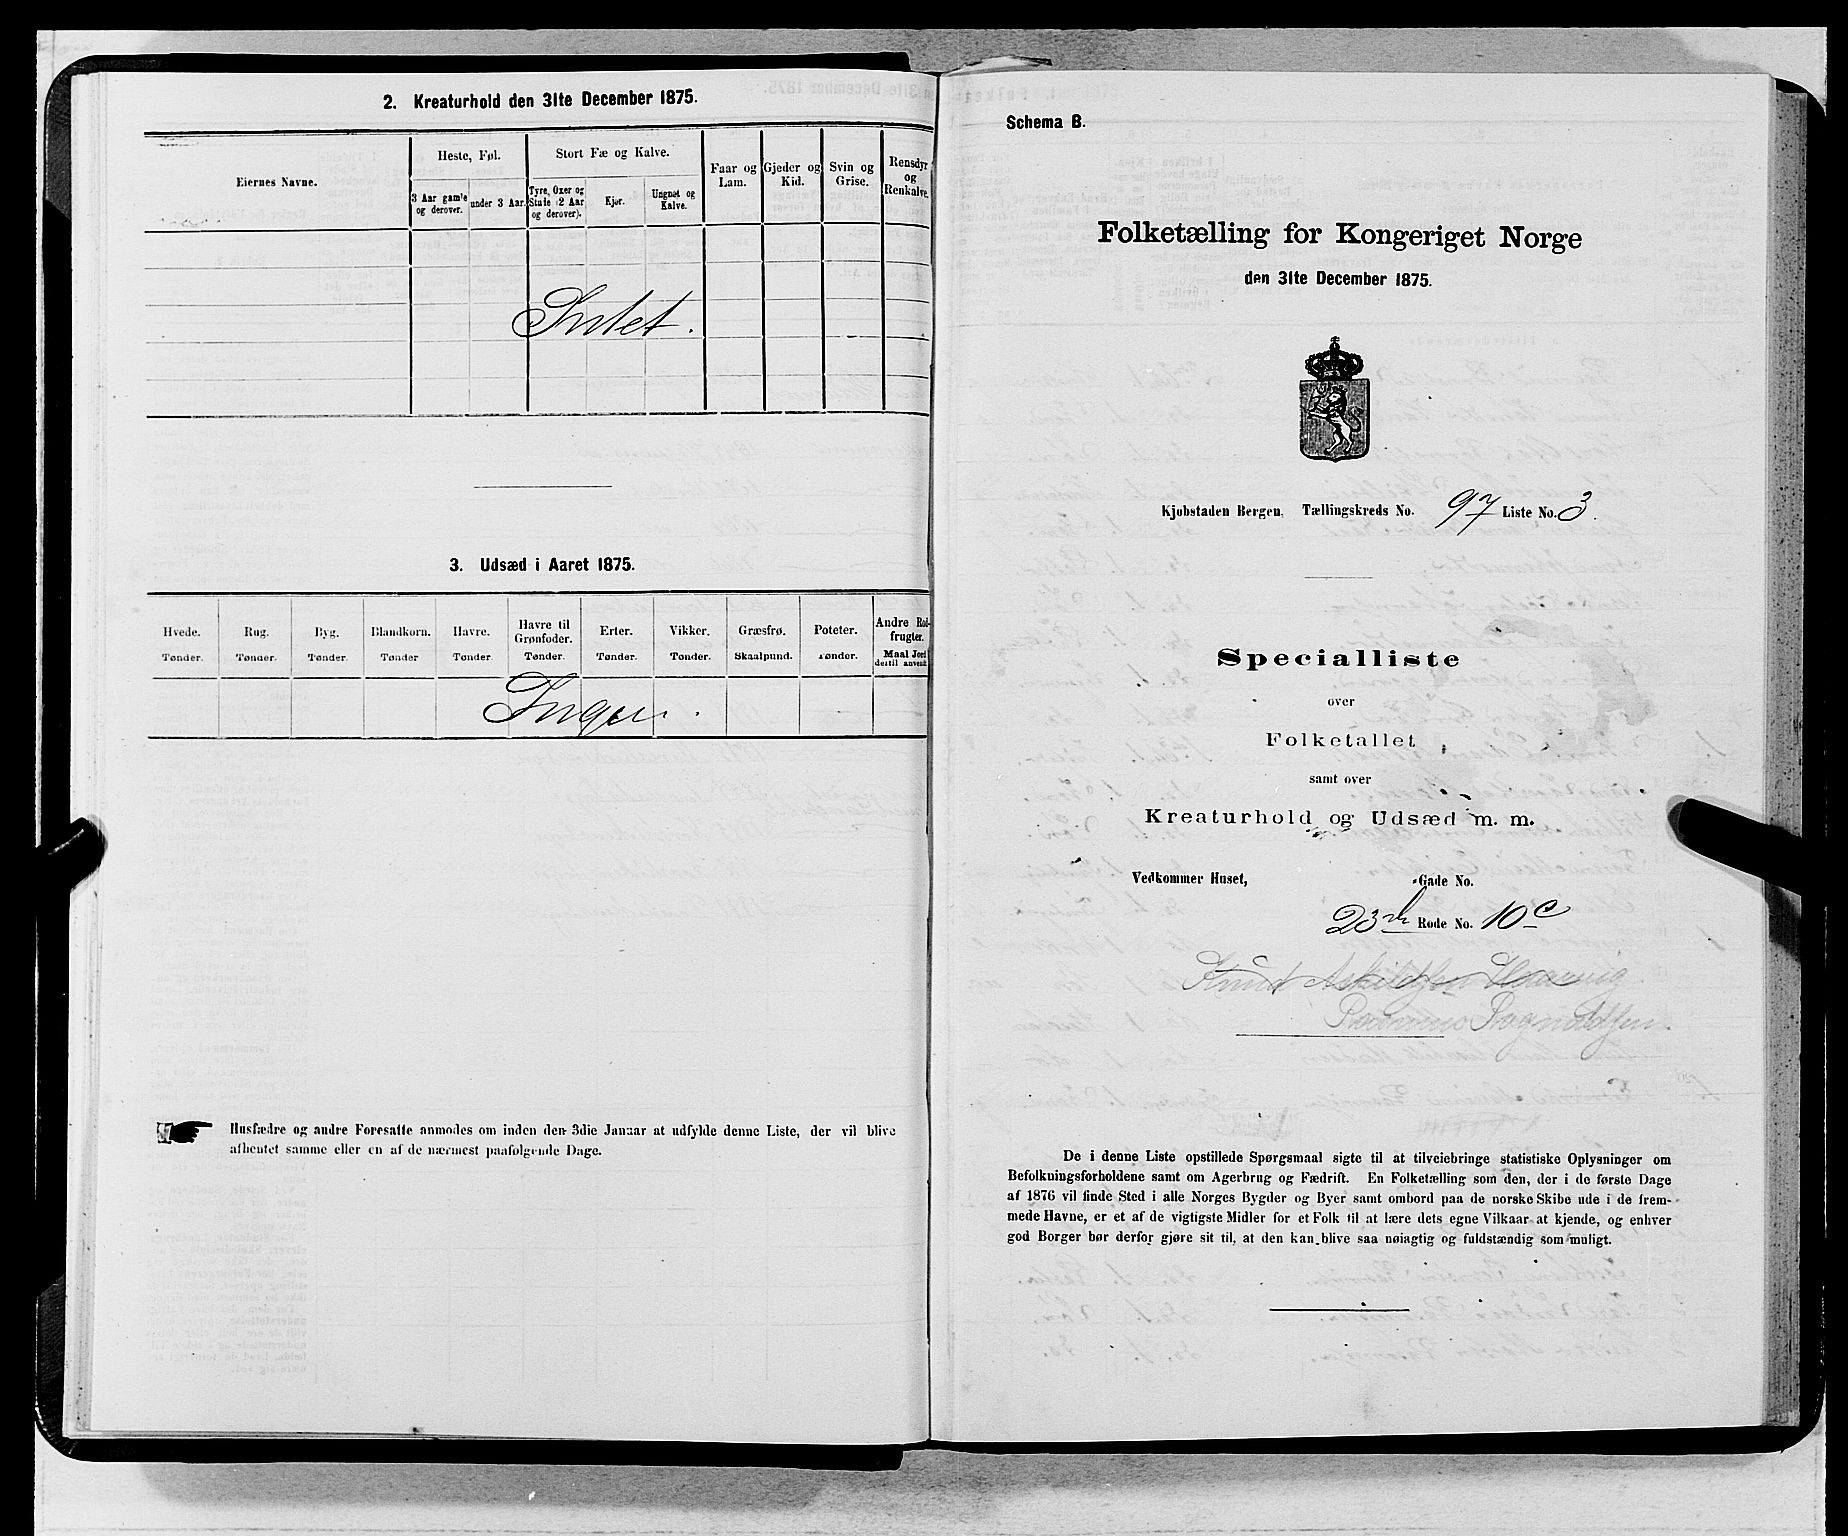 2. Kreaturhold den 31te December 1875.
Eiernes Navne.
Heste, Føl.
Stort Fæ og Kalve.
Faar og Lam.
Gjeder og Kid.
Svin og Grise.
Rensdyr og Renkalve.
3 Aar gamle og derover.
under 3 Aar.
Tyre, Oxer og Stude (2 Aar og derover).
Kjør.
Ungnøt og Kalve.
Intet.
3. Udsæd i Aaret 1875.
Hvede. Rug. Byg. Blandkorn. Havre. Havre til Grønfoder. Erter. Vikker. Græsfrø. Poteter. Andre Rodfrugter.
Tønder. Tønder. Tønder. Tønder Tønder. Tønder. Tønder. Tønder. Skaalpund. Tønder. Maal Jord dertil anvendt
Ingen.
Husfædre og andre Foresatte anmodes om inden den 3die Januar at udfylde denne Liste, der vil blive
afhentet samme eller en af de nærmest paafølgende Dage.
Schema B.
Folketælling for Kongeriget Norge
den 31te December 1875.
Kjøbstaden Bergen, Tællingskreds No. 97 Liste No. 3.
Specialliste
over
Folketallet
samt over
Kreaturhold og Udsæd m. m.
Vedkommer Huset, -Gade No.
23de Rode No. 10c
Knud Askildsen
Rasmus Rognaldsen.
De i denne Liste opstillede Spørgsmaal sigte til at tilveiebringe statistiske Oplysninger om
Befolkningsforholdene samt om Agerbrug og Fædrift. En Folketælling som den, der i de første Dage
af 1876 vil finde Sted i alle Norges Bygder og Byer samt ombord paa de norske Skibe ude i de frem-
mede Havne, er et af de vigtigste Midler for et Folk til at lære dets egne Vilkaar at kjende, og enhver
god Borger bør derfor gjøre sit til, at den kan blive saa nøiagtig og fuldstændig som muligt.